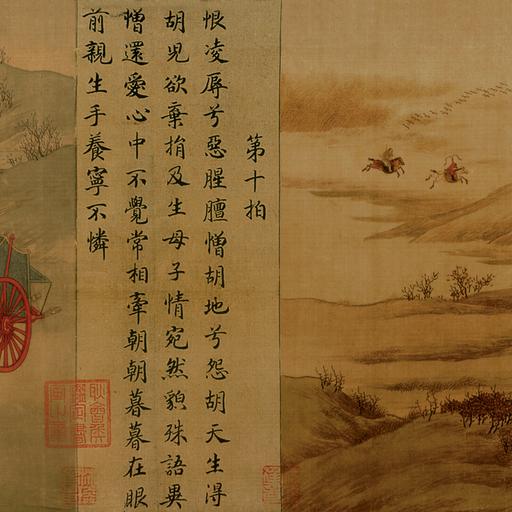 第十拍
恨凌辱兮惡腥膻憎胡地兮怨胡天生得
胡兒欲棄捐及生母子情宛然貌殊語異
憎還愛心中不覺常相牽朝朝暮暮在眼
前親生手養寧不憐